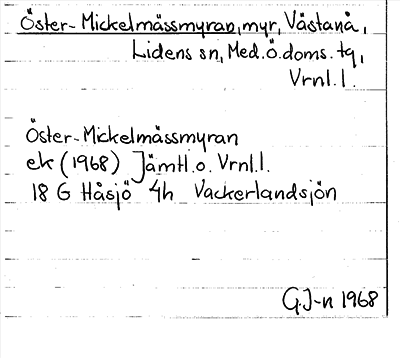 Öster-Mickelmässmyran, myr, Västanå,
Lidens sn, Med.Ö.doms.tg,
Vrnl.l.
Öster-Mickelmässmyran
ek (1968) Jämtl.o. Vrnl.l.
18 G Håsjö 4h Vackerlandsjön
G.J-n 1968